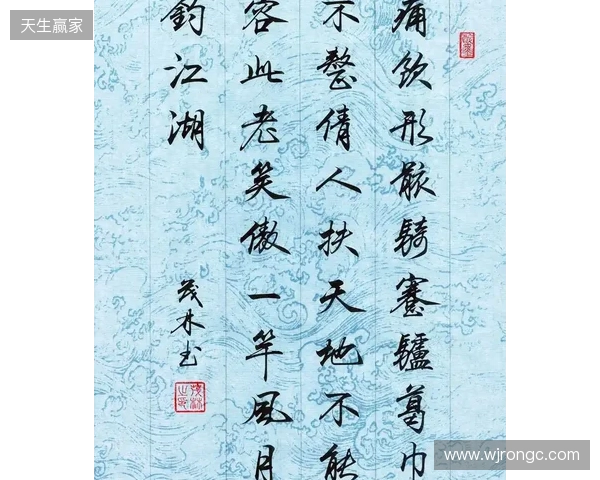 天生赢家
痛飲形骸騎蹇驢葛巾
不整倩人扶天地不能
容此老笑傲一竿風月
釣江湖
茂林书
www.wjrongc.com